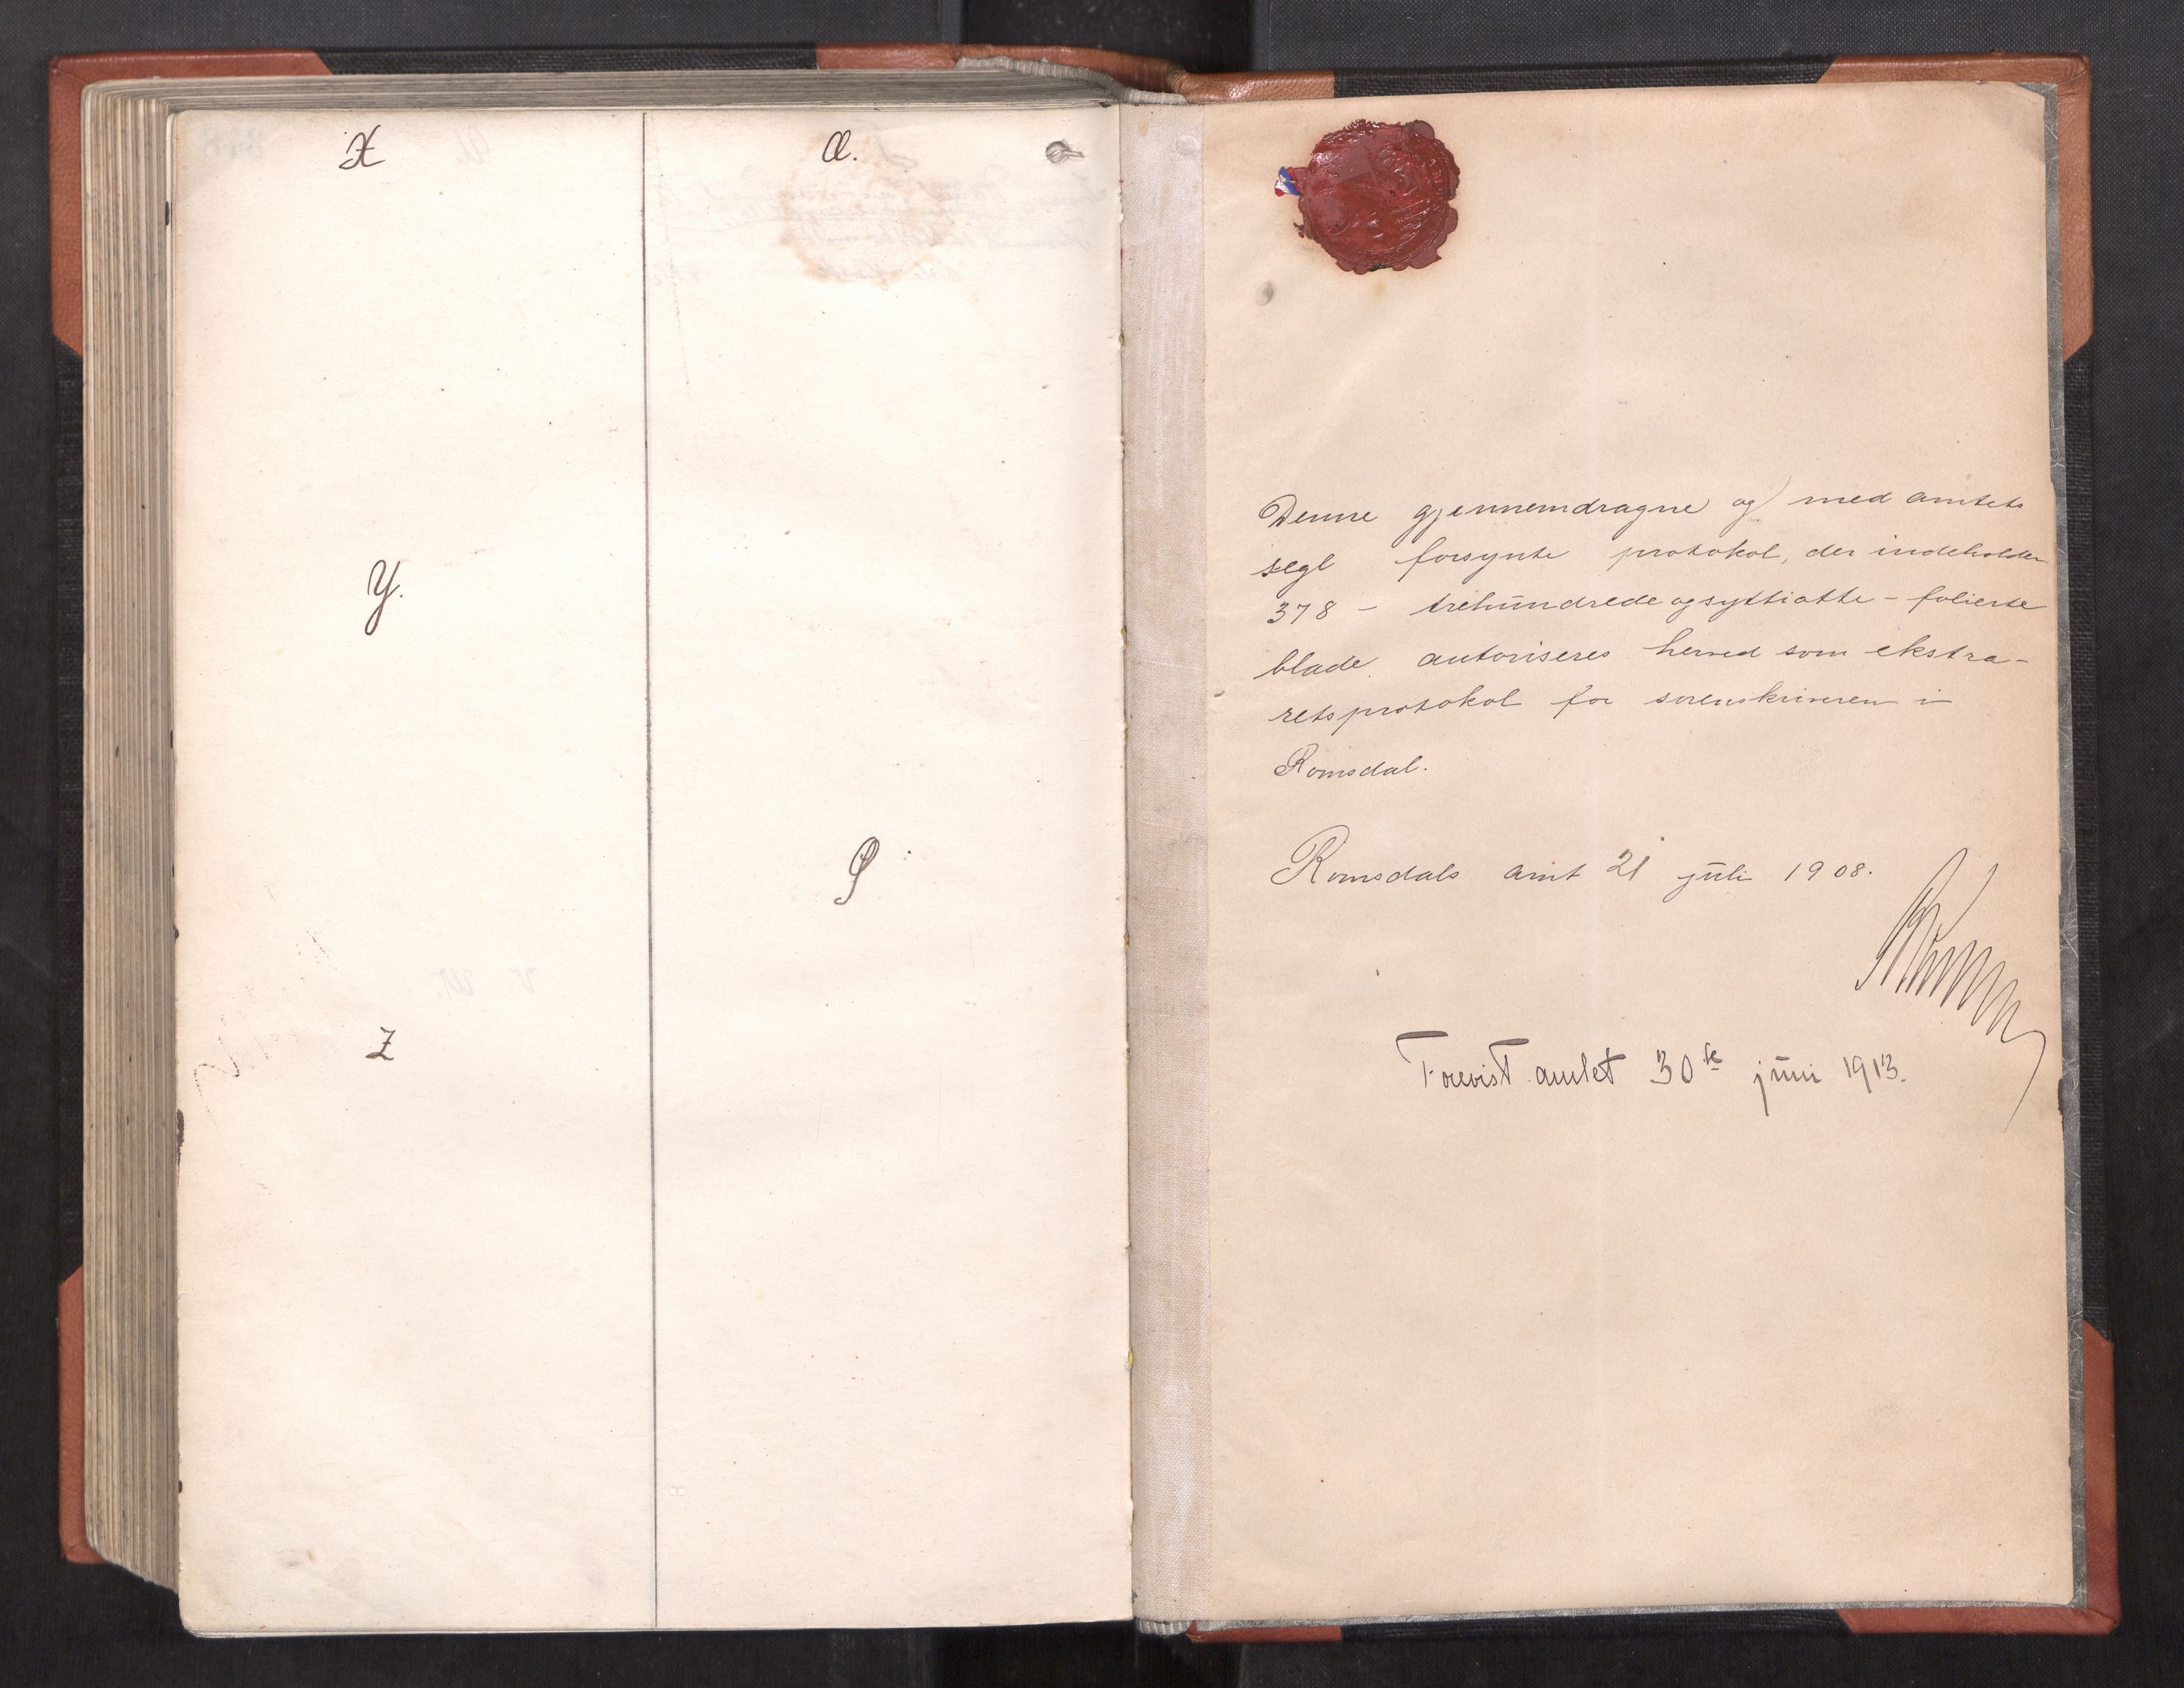 X
Y.
Z
Æ.
Ø
Denne gjennemdragne og med amtets
segl forsynte protokol, der indeholder
378 - trehundrede og syttiotte - folierte
blade autoriseres herved som ekstra-
retsprotokol for sorenskriveren i
Romsdal.
Romsdals amt 21 juli 1908.
Forevist amtet 30te juni 1913.